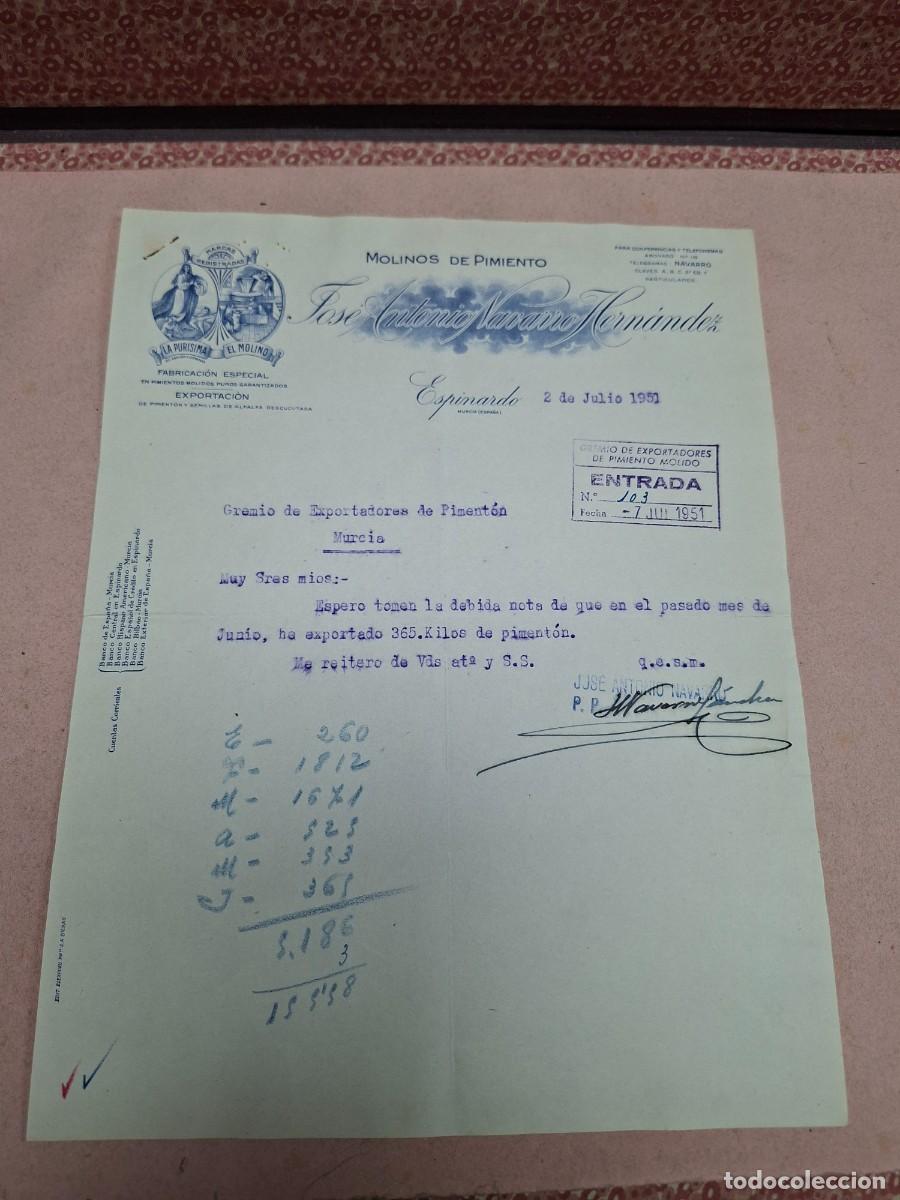 MARCAS
REGISTRADAS
LA PURISIMA
EL MOLINO
FABRICACIÓN ESPECIAL
EN PIMIENTOS MOLIDOS PUROS GARANTIZADOS
EXPORTACIÓN
DE PIMENTÓN Y SEMILLAS DE ALFALFA DESCUCUTADA
MOLINOS DE PIMIENTO
José Antonio Navarro Hernández
PARA CONFERENCIAS Y TELEFONEMAS
ABONADO Nº
TELEGRAMAS: NAVARRO
CLAVES A. B. C. 5ª ED. Y
PARTICULARES
Espinardo
MURCIA (ESPAÑA)
2 de Julio 1951
GREMIO DE EXPORTADORES
DE PIMIENTO MOLIDO
ENTRADA
N.º 103
Fecha -7 JUL 1951
Gremio de Exportadores de Pimentón
Murcia
Muy Sres mios:-
Espero tomen la debida nota de que en el pasado mes de
Junio, he exportado 365.Kilos de pimentón.
Me reitero de Vds atª y S.S. q.e.s.m.
JOSE ANTONIO NAVARRO
P. P.
Cuentas Corrientes
Banco de España - Murcia
Banco Central en Espinardo
Banco Hispano Americano - Murcia
Banco Español de Crédito en Espinardo
Banco Bilbao - Murcia
Banco Exterior de España - Murcia
E - 260
F - 1812
M - 1671
a - 525
M - 553
J - 365
5.186
3
15558
todocoleccion